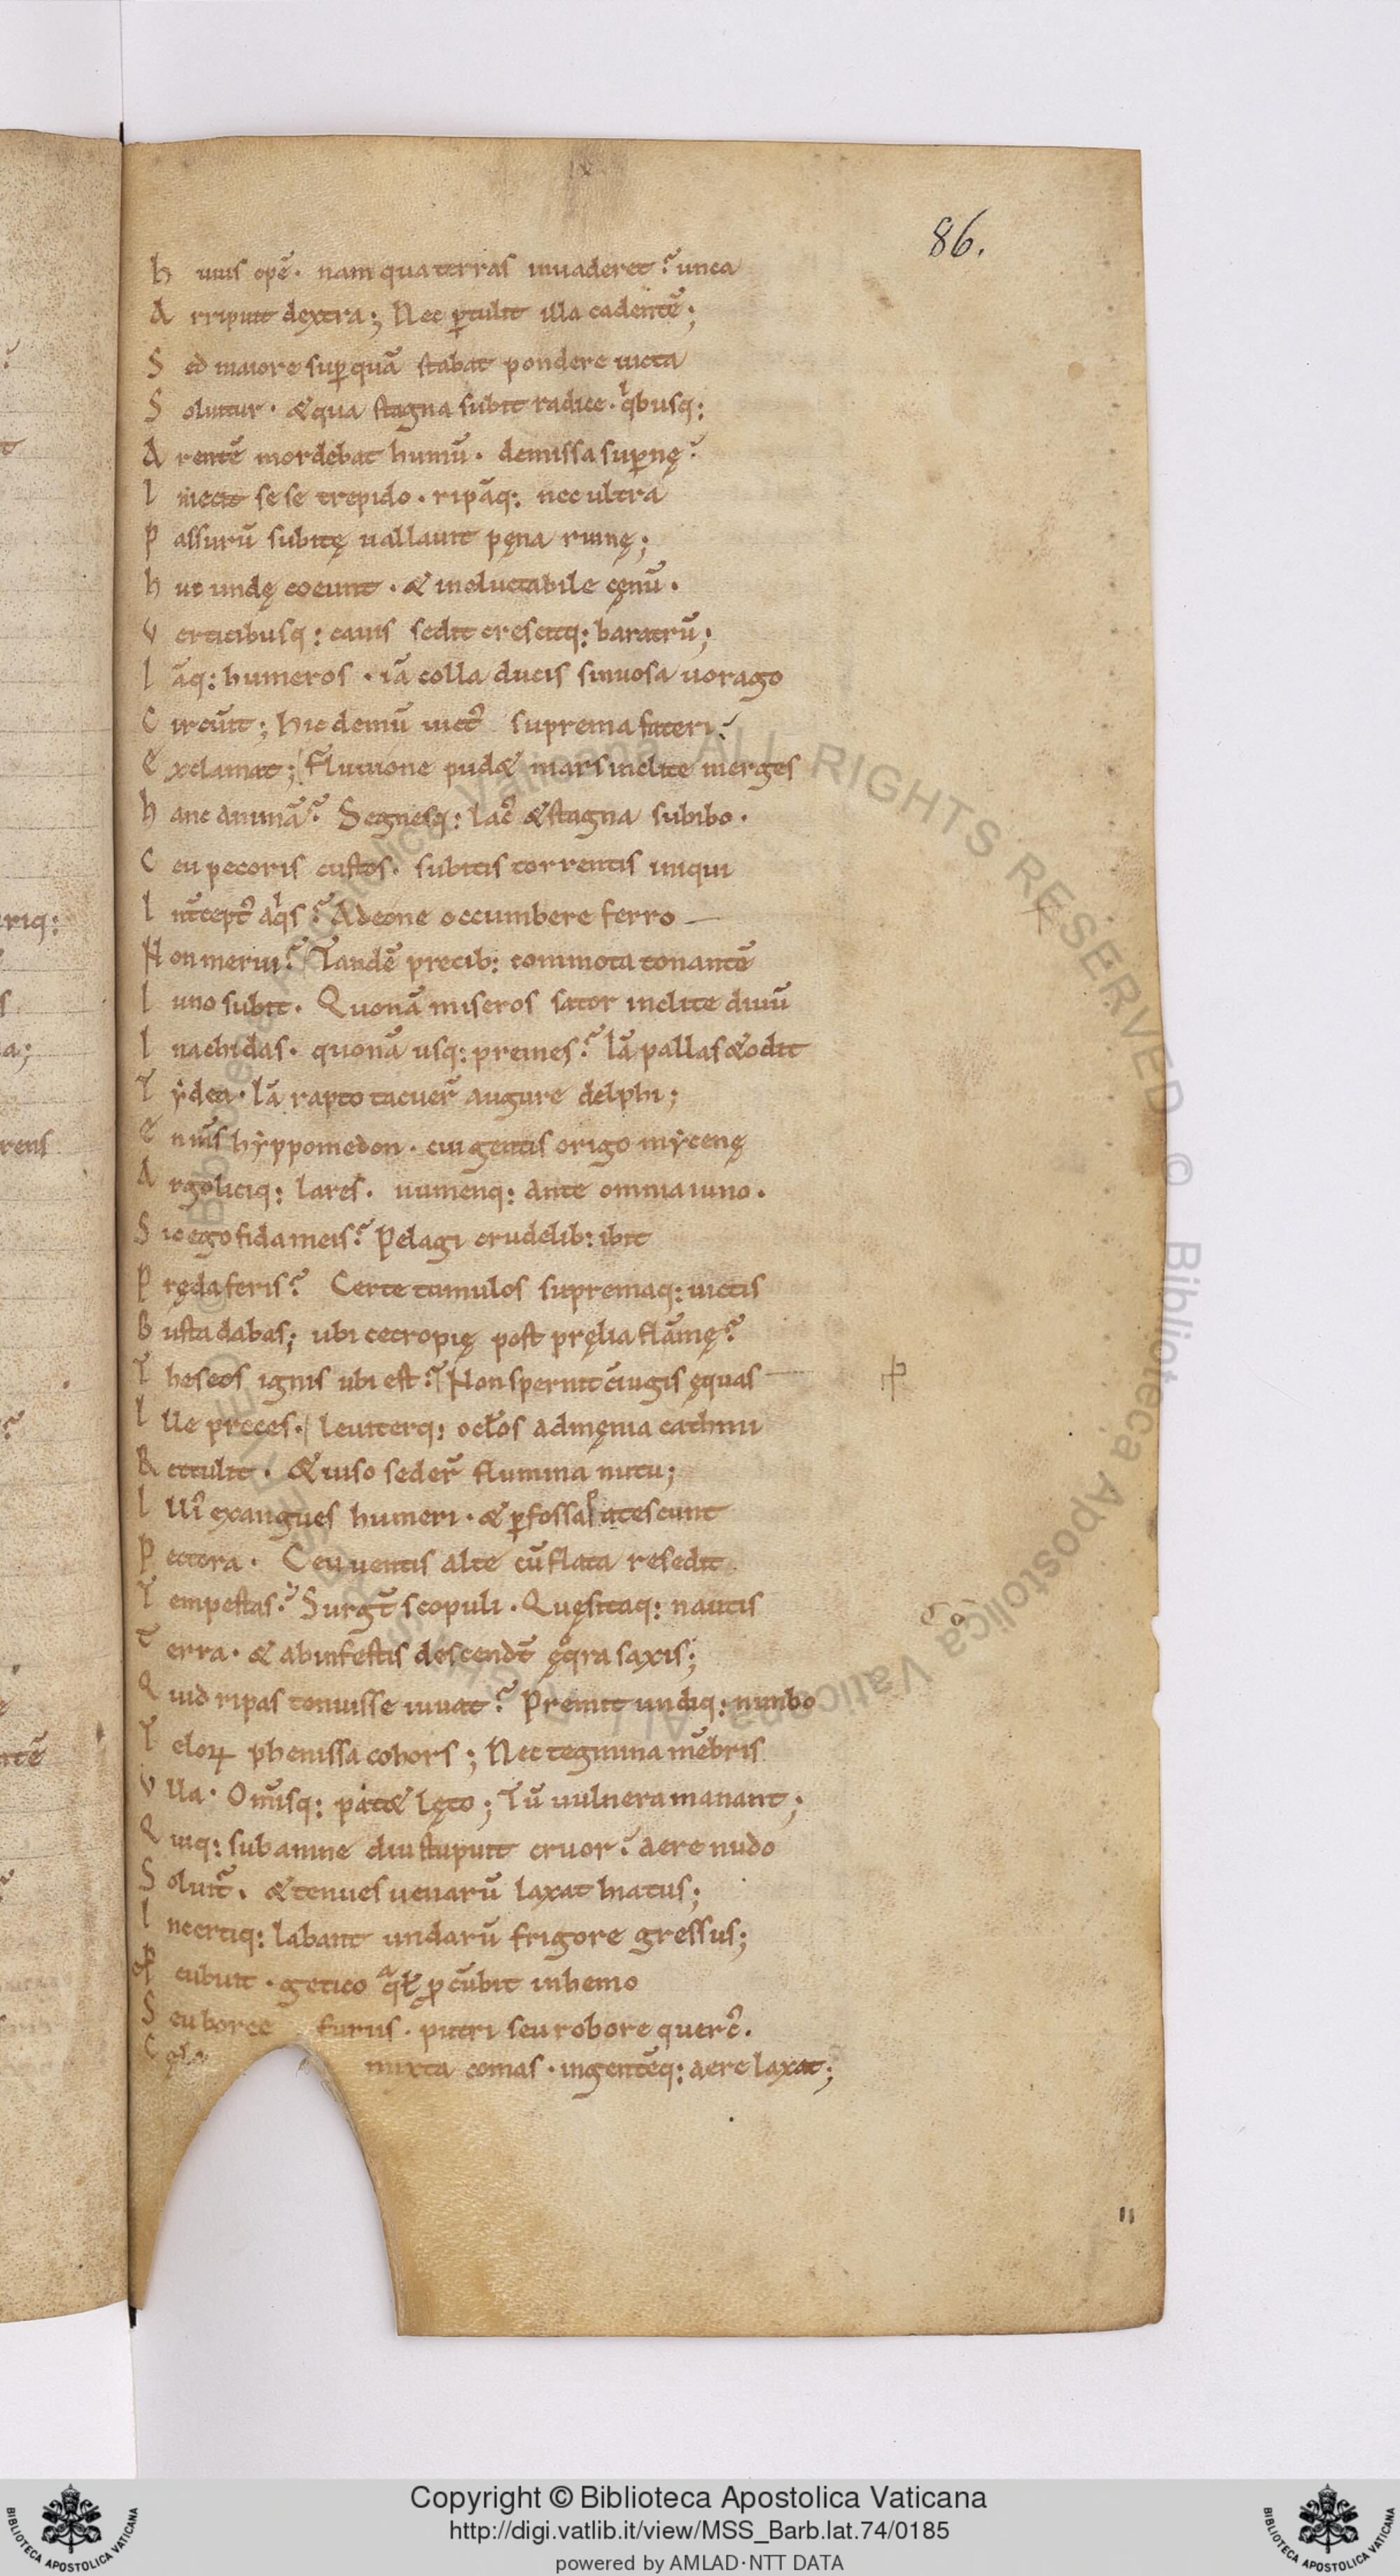 86.
huius opē. nam qua terras inuaderet? unca
Arripuit dextra; Nec ꝑtulit illa cadentē;
Sed maiore suꝑ quā stabat pondere uicta
Soluitur. & qua stagna subit radice. qͥbusq:
Arentē mordebat humū. demissa suꝑnę?
Iniecit se se trepido. ripāq: nec ultra
Passurū subitę uallauit pęna ruinę;
huc undę coeunt. & inoluctabile cęnū.
Verticibusq: cauis sedit crescitq: baratrū;
Iāq: humeros. iā colla ducis sinuosa uorago
Circūit; hic demū uict᾿ suprema fateri?
Exclamat; Fluuione pud& mars inclite merges
hanc animā? Segnesq: lac᾿ & stagna subibo.
Ceu pecoris custos. subitis torrentis iniqui
Int̄cept᾿ aqͥs? Adeone occumbere ferro
Non merui? Tandē precib: commota tonantē
Iuno subit. Quonā miseros sator inclite diuū
Inachidas. quonā usq: premes? Iā pallas & odit
Tẏdea. Iā rapto tacuer̄ augure delphi;
En m̄s hẏppomedon. cui gentis origo mẏcenę
Argoliciq: lares. numenq: ante omnia iuno.
Sic ego fida meis? Pelagi crudelib: ibit
Pręda feris? Certe tumulos supremaq: uictis
Busta dabas; ubi cecropię post pręlia flāmę?
Theseos ignis ubi est? Non spernit c̄iugis ęquas
Ille preces. leuiterq: ocl̄os ad męnia cathmi
Rettulit. & uiso seder̄ flumina nutu;
Illi᾿ exangues humeri. & ꝑfossa patescunt
Pectora. Ceu uentis alte cū flata resedit
Tempestas? Surgt̄ scopuli. Quęsitaq: nautis
Terra. & ab infestis descendt̄ ęqͦra saxis;
Quid ripas tenuisse iuuat? Premit undiq: nimbo
Teloꝝ phenissa cohors; Nec tegmina mēbris
Vlla. Om̄isq: pat& lęto; Tū uulnera manant;
Quiq: sub amne diu stupuit cruor? aere nudo
Soluit᷑. & tenues uenarū laxat hiatus;
Incertiq: labant undarū frigore gressus;
Pcubuit. getico qͣl̄ ꝓcūbit in hemo
Seu boree furiis. putri seu robore querc᾿.
C mixta comas. ingentēq: aere laxat;
Copyright © Biblioteca Apostolica Vaticana
http://digi.vatlib.it/view/MSS_Barb.lat.74/0185
powered by AMLAD·NTT DATA